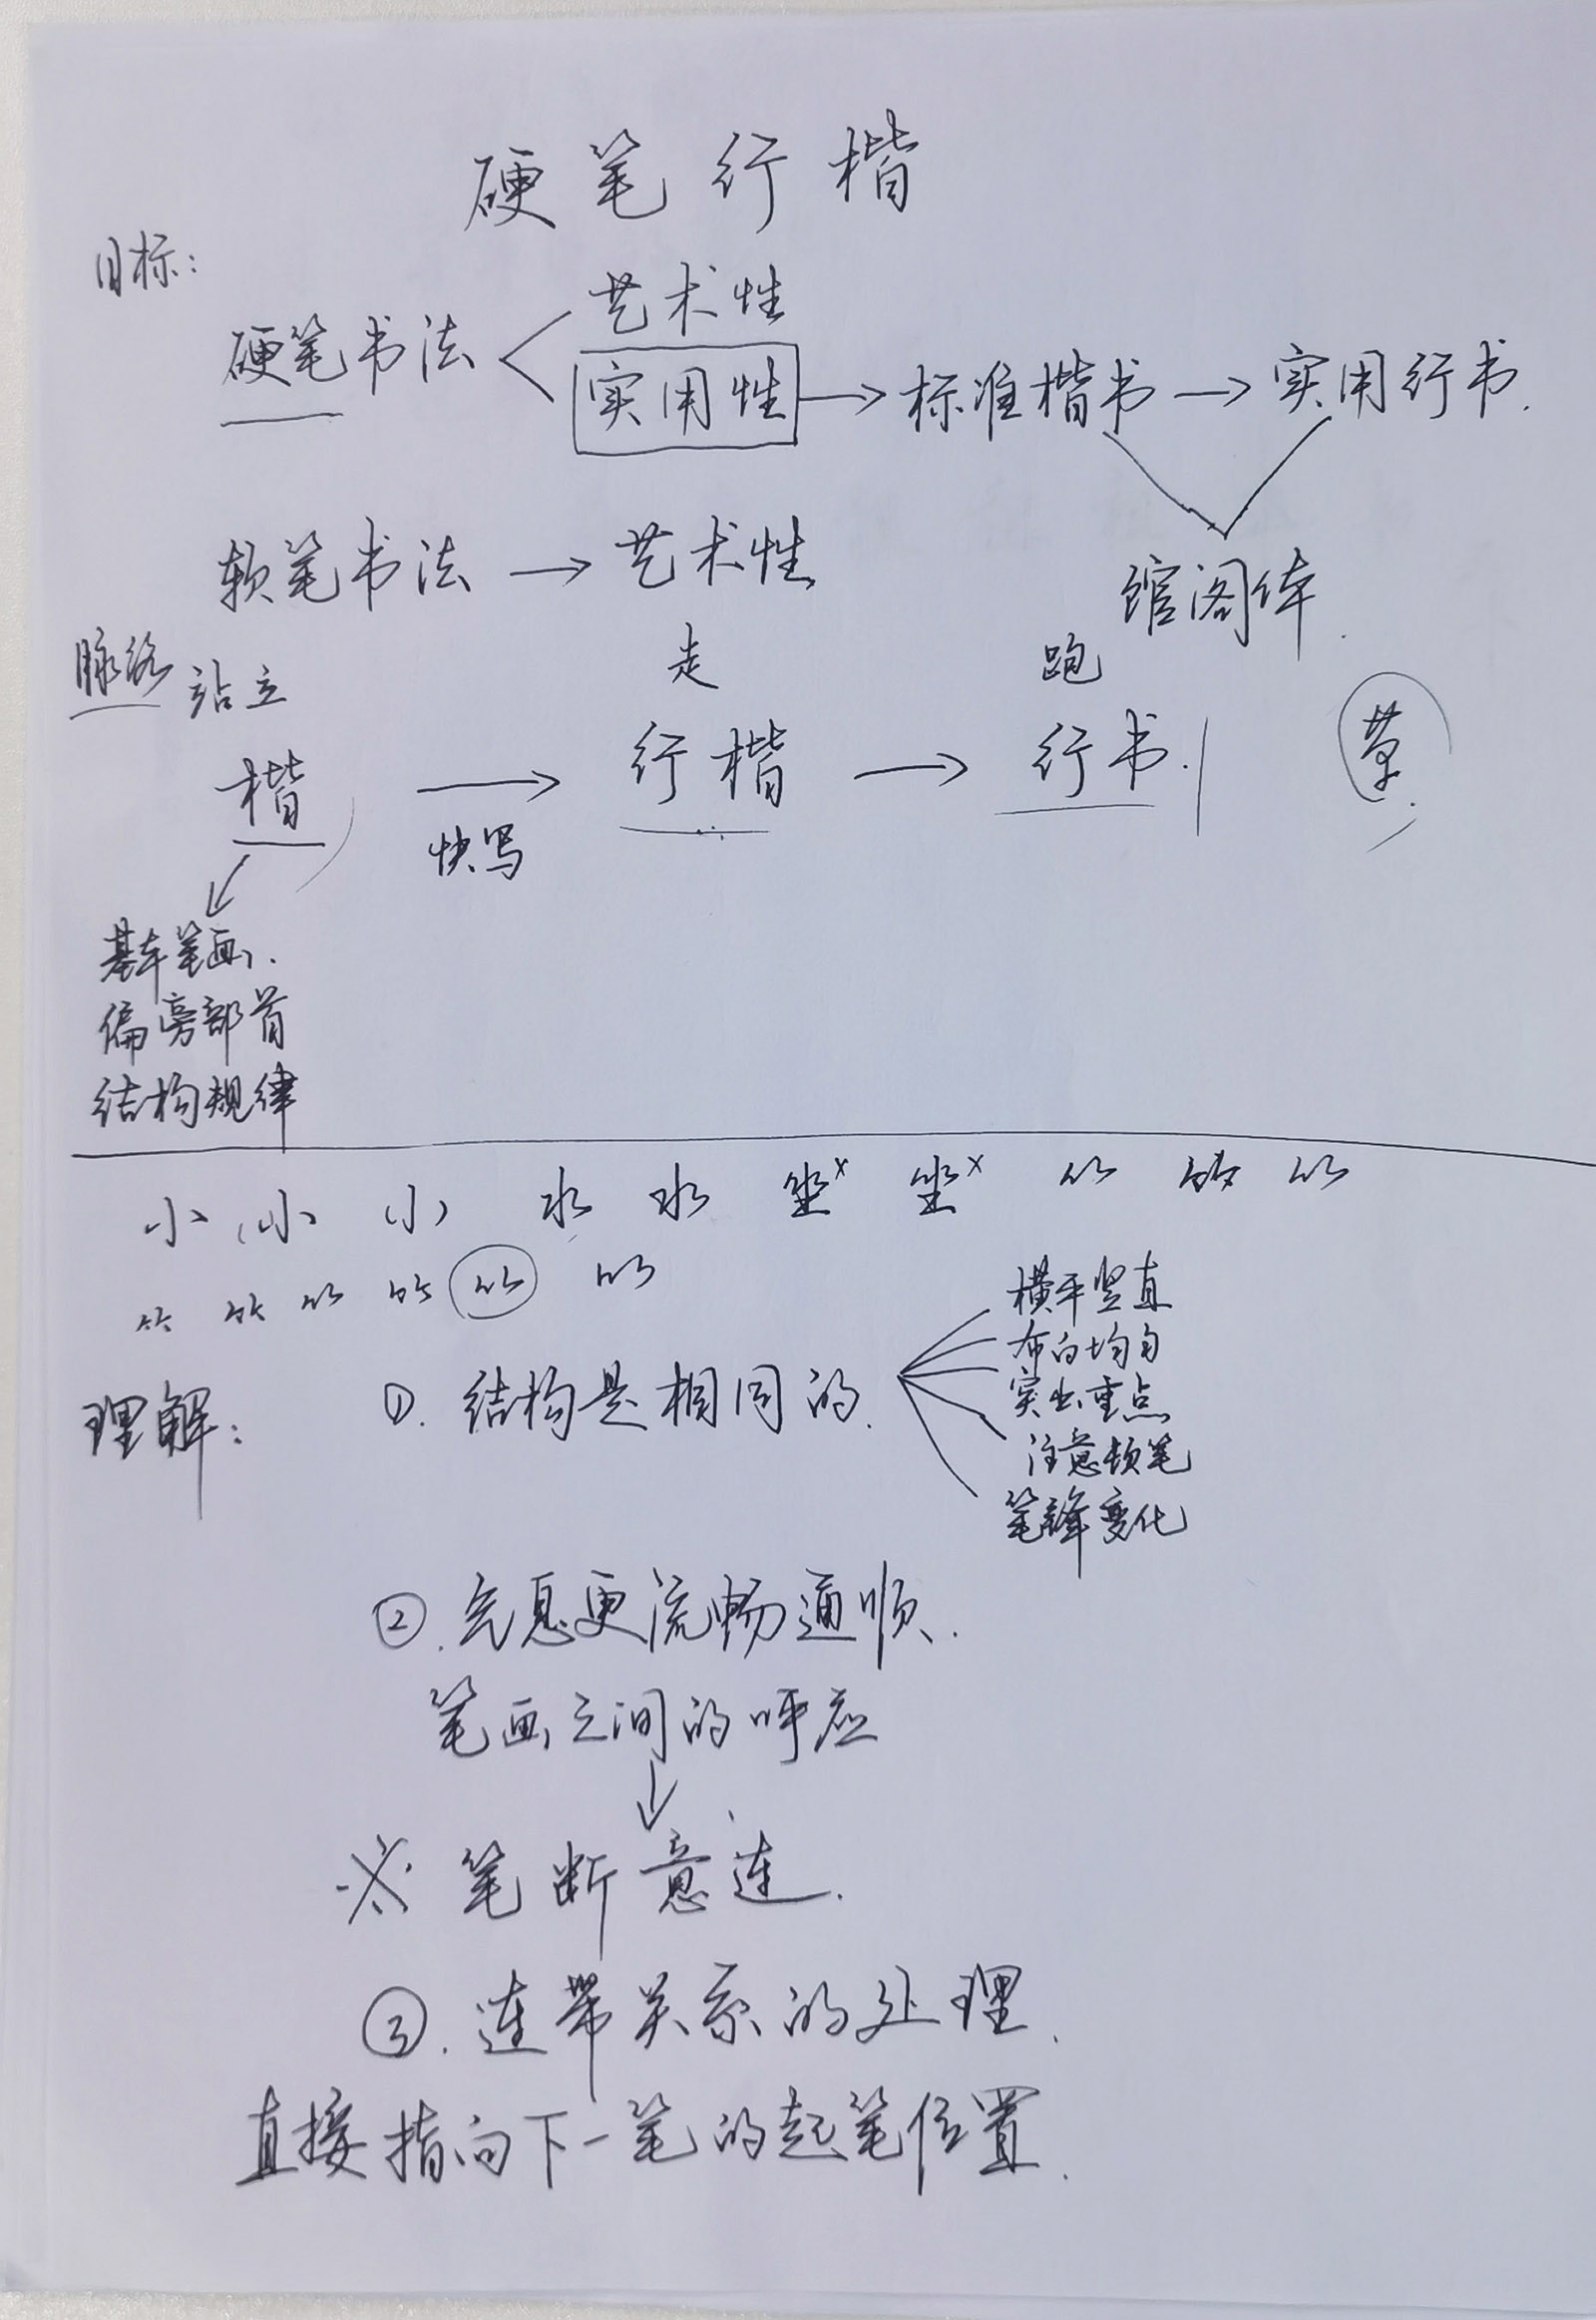 硬笔行楷
目标:
艺术性
硬笔书法
实用性 → 标准楷书 → 实用行书.
软笔书法 → 艺术性
馆阁体.
脉络 站立 走 跑
楷 → 行楷 → 行书. 草
快写
基本笔画.
偏旁部首
结构规律
小 小 小 水 水 坐× 坐× 竹 竹 竹
竹 竹 竹 竹 竹 竹
横平竖直
布白均匀
理解: ①. 结构是相同的.
突出重点
注意顿笔
笔锋变化
②. 气息更流畅通顺.
笔画之间的呼应
↓
※ 笔断意连.
③. 连带关系的处理.
直接指向下一笔的起笔位置.